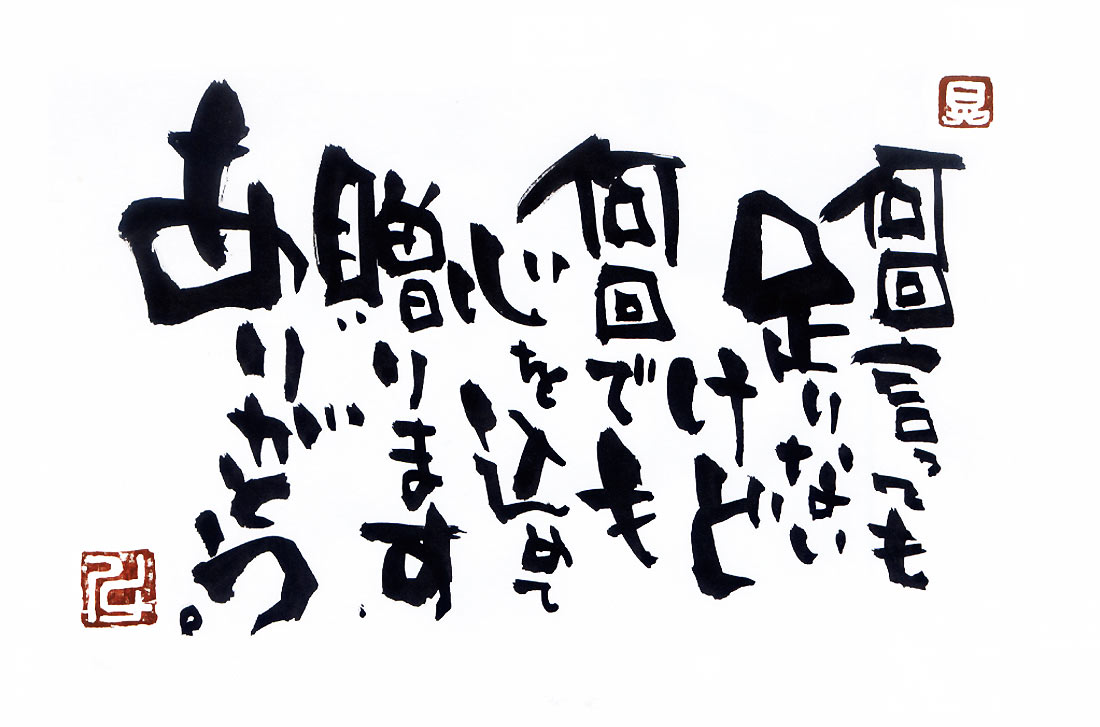 晃
何回言っても
足りない
けど
何回でも
心を
込めて
贈ります
ありがとう。